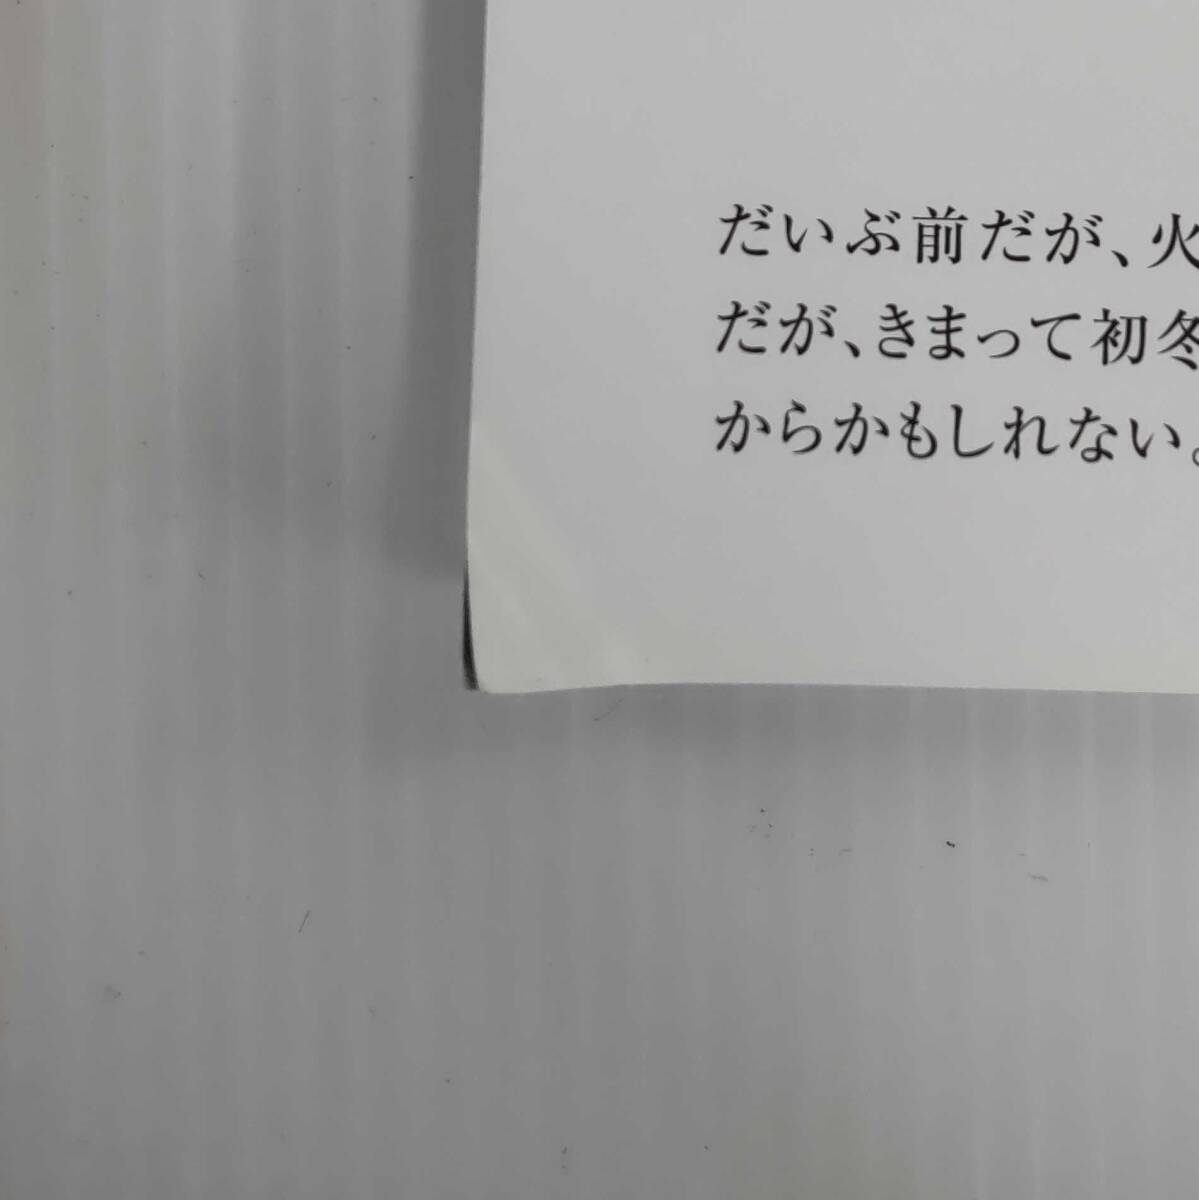 だいぶ前だが、火
だが、きまって初冬
からかもしれない。